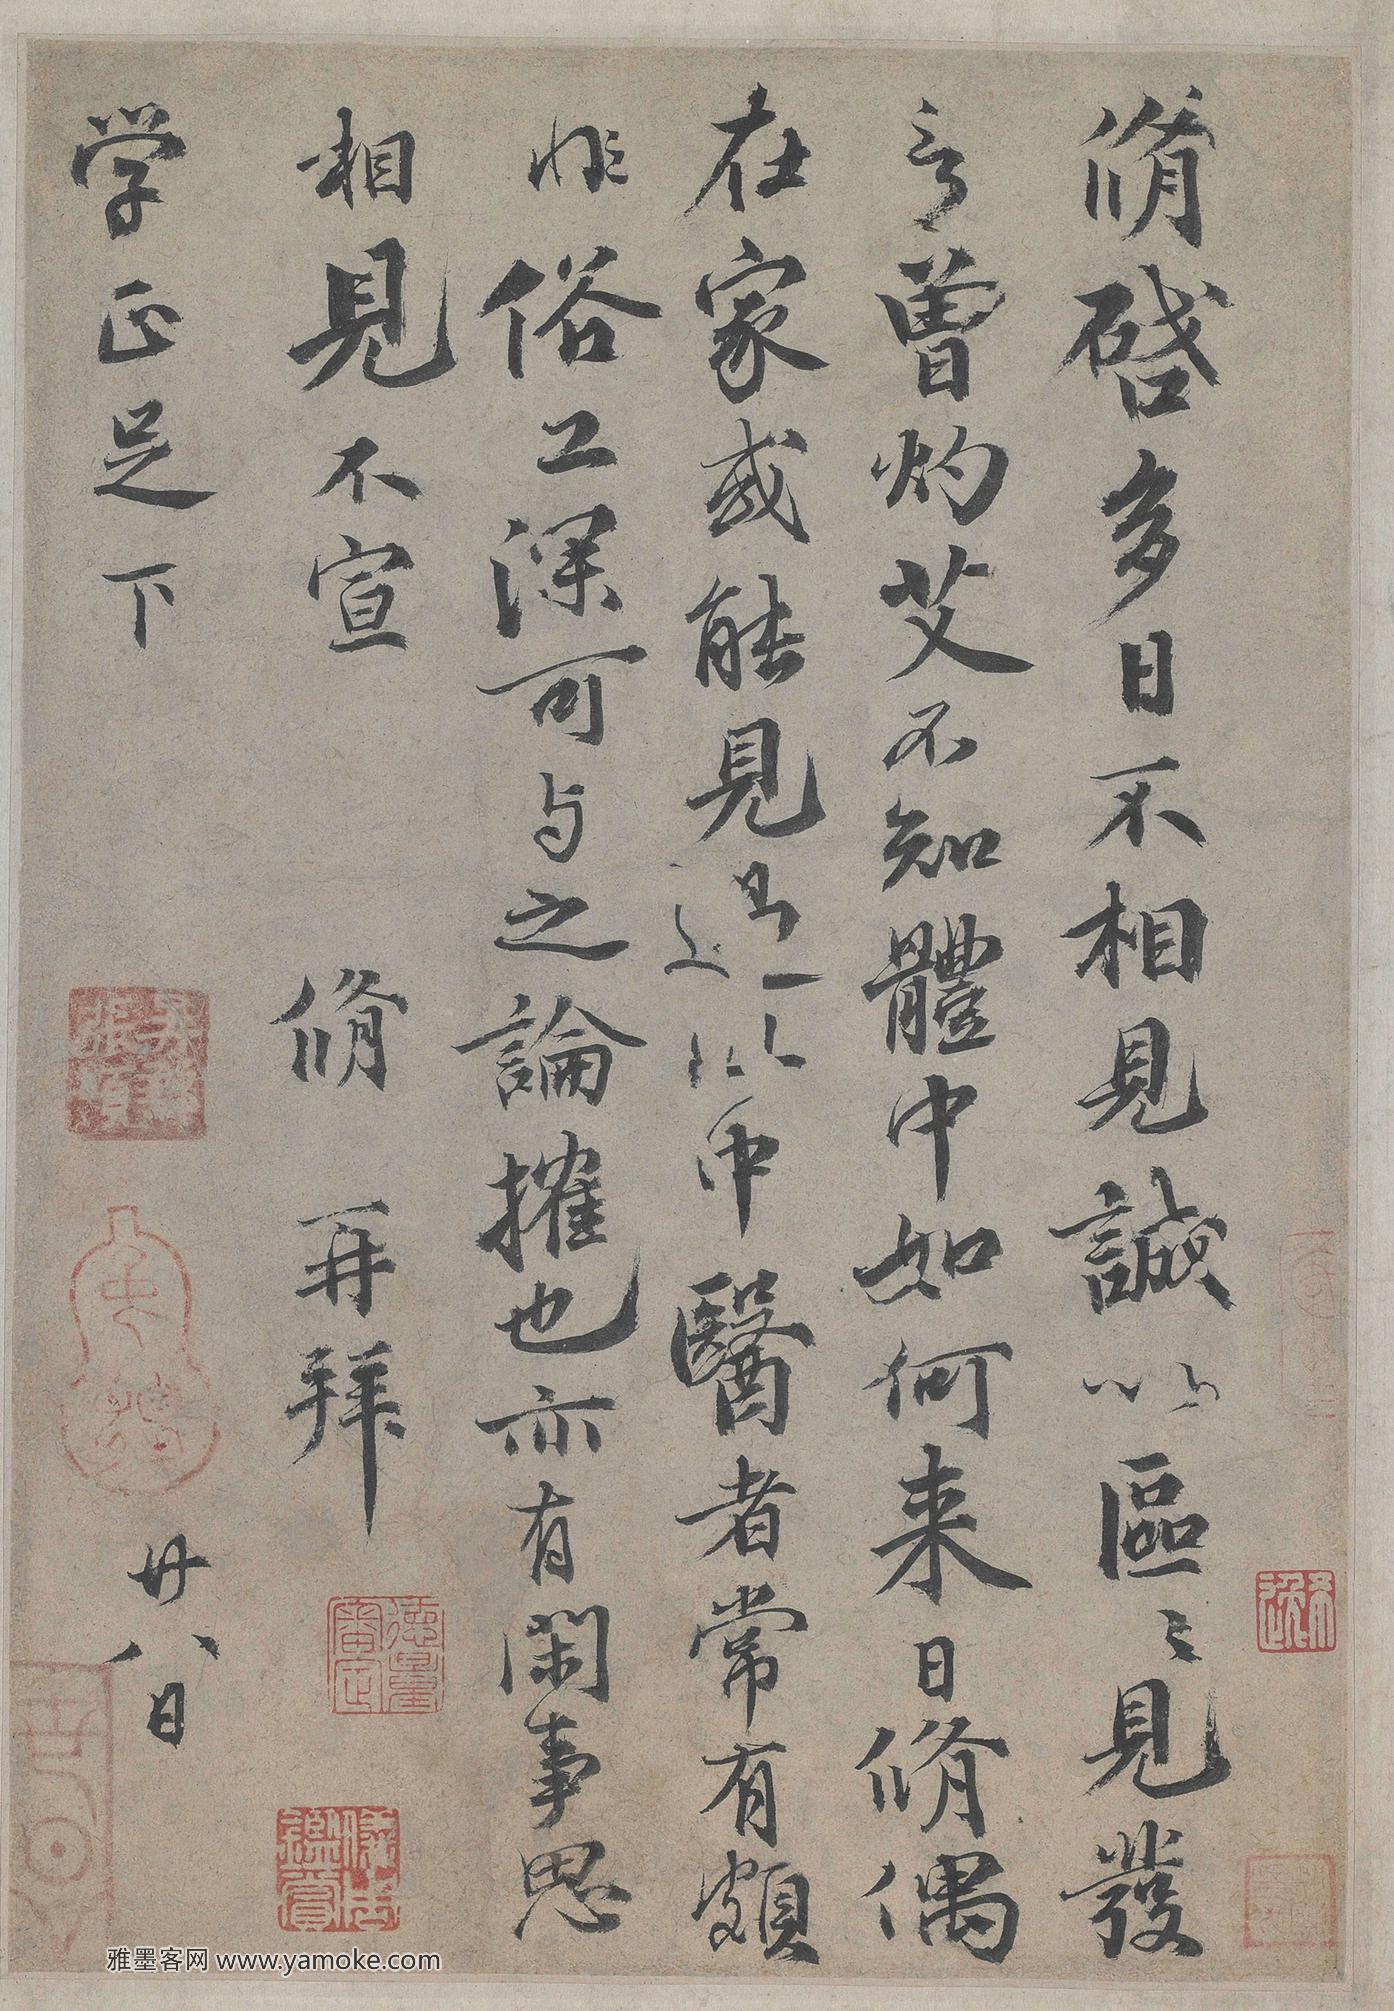 脩啓多日不相見誠以區〻見發
言曾灼艾不知體中如何来日脩偶
在家或能見過此中醫者常有頗
非俗工深可与之論搉也亦有閑事思
相見不宣 脩再拜
学正足下 廿八日
德量審定
雅墨客网 www.yamoke.com